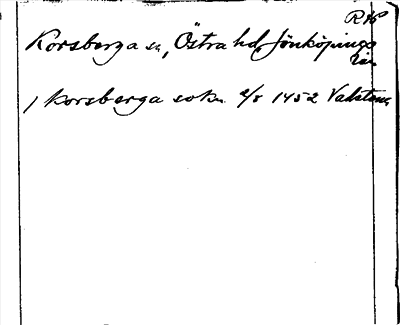 Korsberga sn, Östra hd, Jönköpings
län
j korsberga sokn 2/5 1452 Vadstena